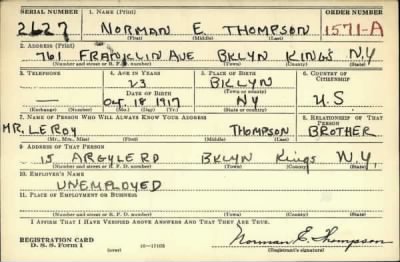 SERIAL NUMBER 1. NAME (Print) ORDER NUMBER
2627 NORMAN E. THOMPSON 1571-A
(First) (Middle) (Last)
2. ADDRESS (Print)
761 FRANKLIN AVE BKLYN KINGS N.Y
(Number and street or R. F. D. number) (Town) (County) (State)
3. TELEPHONE 4. AGE IN YEARS 5. PLACE OF BIRTH 6. COUNTRY OF CITIZENSHIP
— 23 BKLYN
DATE OF BIRTH (Town or county)
— OCT. 18 1917 NY U.S
(Mo.) (Day) (Yr.) (State or country)
7. NAME OF PERSON WHO WILL ALWAYS KNOW YOUR ADDRESS 8. RELATIONSHIP OF THAT PERSON
MR. LEROY THOMPSON BROTHER
(Mr., Mrs., Miss) (First) (Middle) (Last)
9. ADDRESS OF THAT PERSON
15 ARGYLE RD BKLYN Kings N.Y.
(Number and street or R. F. D. number) (Town) (County) (State)
10. EMPLOYER'S NAME
UNEMPLOYED
11. PLACE OF EMPLOYMENT OR BUSINESS
(Number and street or R. F. D. number) (Town) (County) (State)
I AFFIRM THAT I HAVE VERIFIED ABOVE ANSWERS AND THAT THEY ARE TRUE.
REGISTRATION CARD
D. S. S. Form 1 (over) Norman E. Thompson
(Registrant's signature)